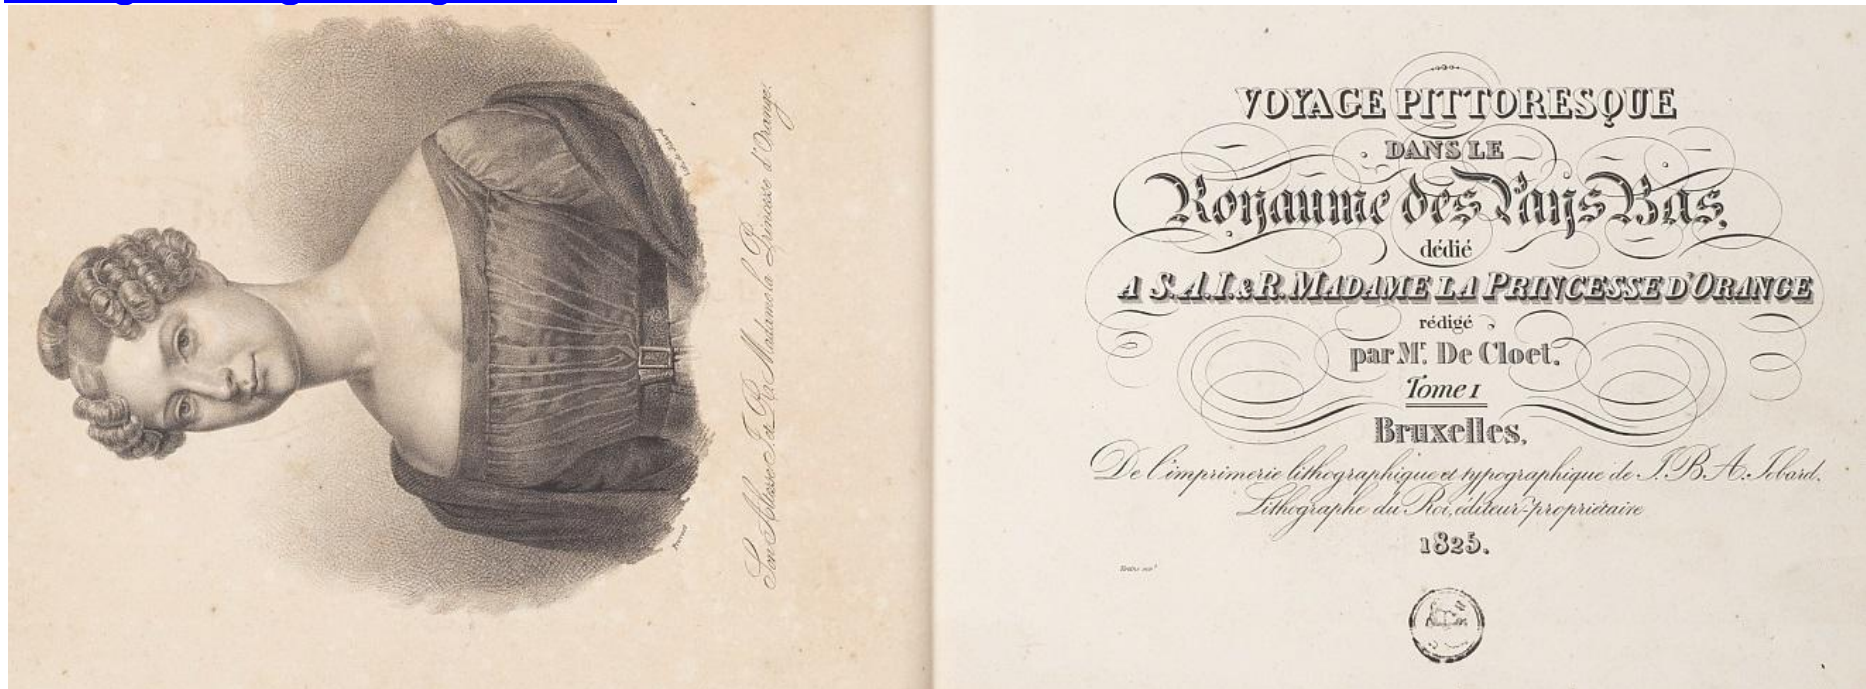 Son Altesse I. et R. Madame la Princesse d'Orange.
VOYAGE PITTORESQUE
DANS LE
Royaume des Pays Bas,
dédié
A S.A.I. & R. MADAME LA PRINCESSE D'ORANGE
rédigé
par Mr. De Cloet.
Tome I
Bruxelles,
De l'imprimerie lithographique et typographique de J. B. A. Jobard,
Lithographe du Roi, éditeur-propriétaire
1825.